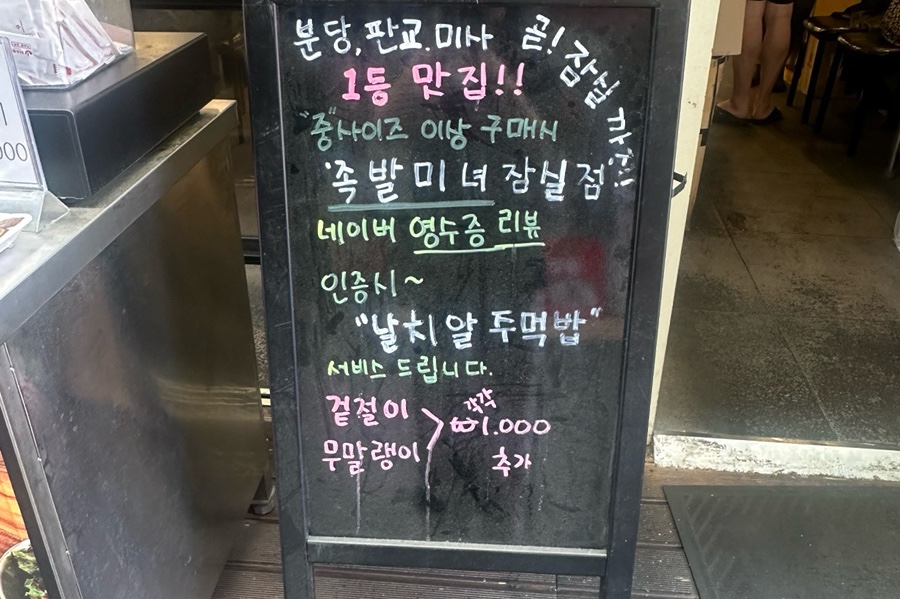 분당, 판교. 미사 곧! 잠실
1등 맛집!!
"중"사이즈 이상 구매시
'족발미녀 잠실점'
네이버 영수증 리뷰
인증시~
"날치알 주먹밥"
서비스 드립니다.
겉절이
무말랭이
각각
₩1.000
추가
000